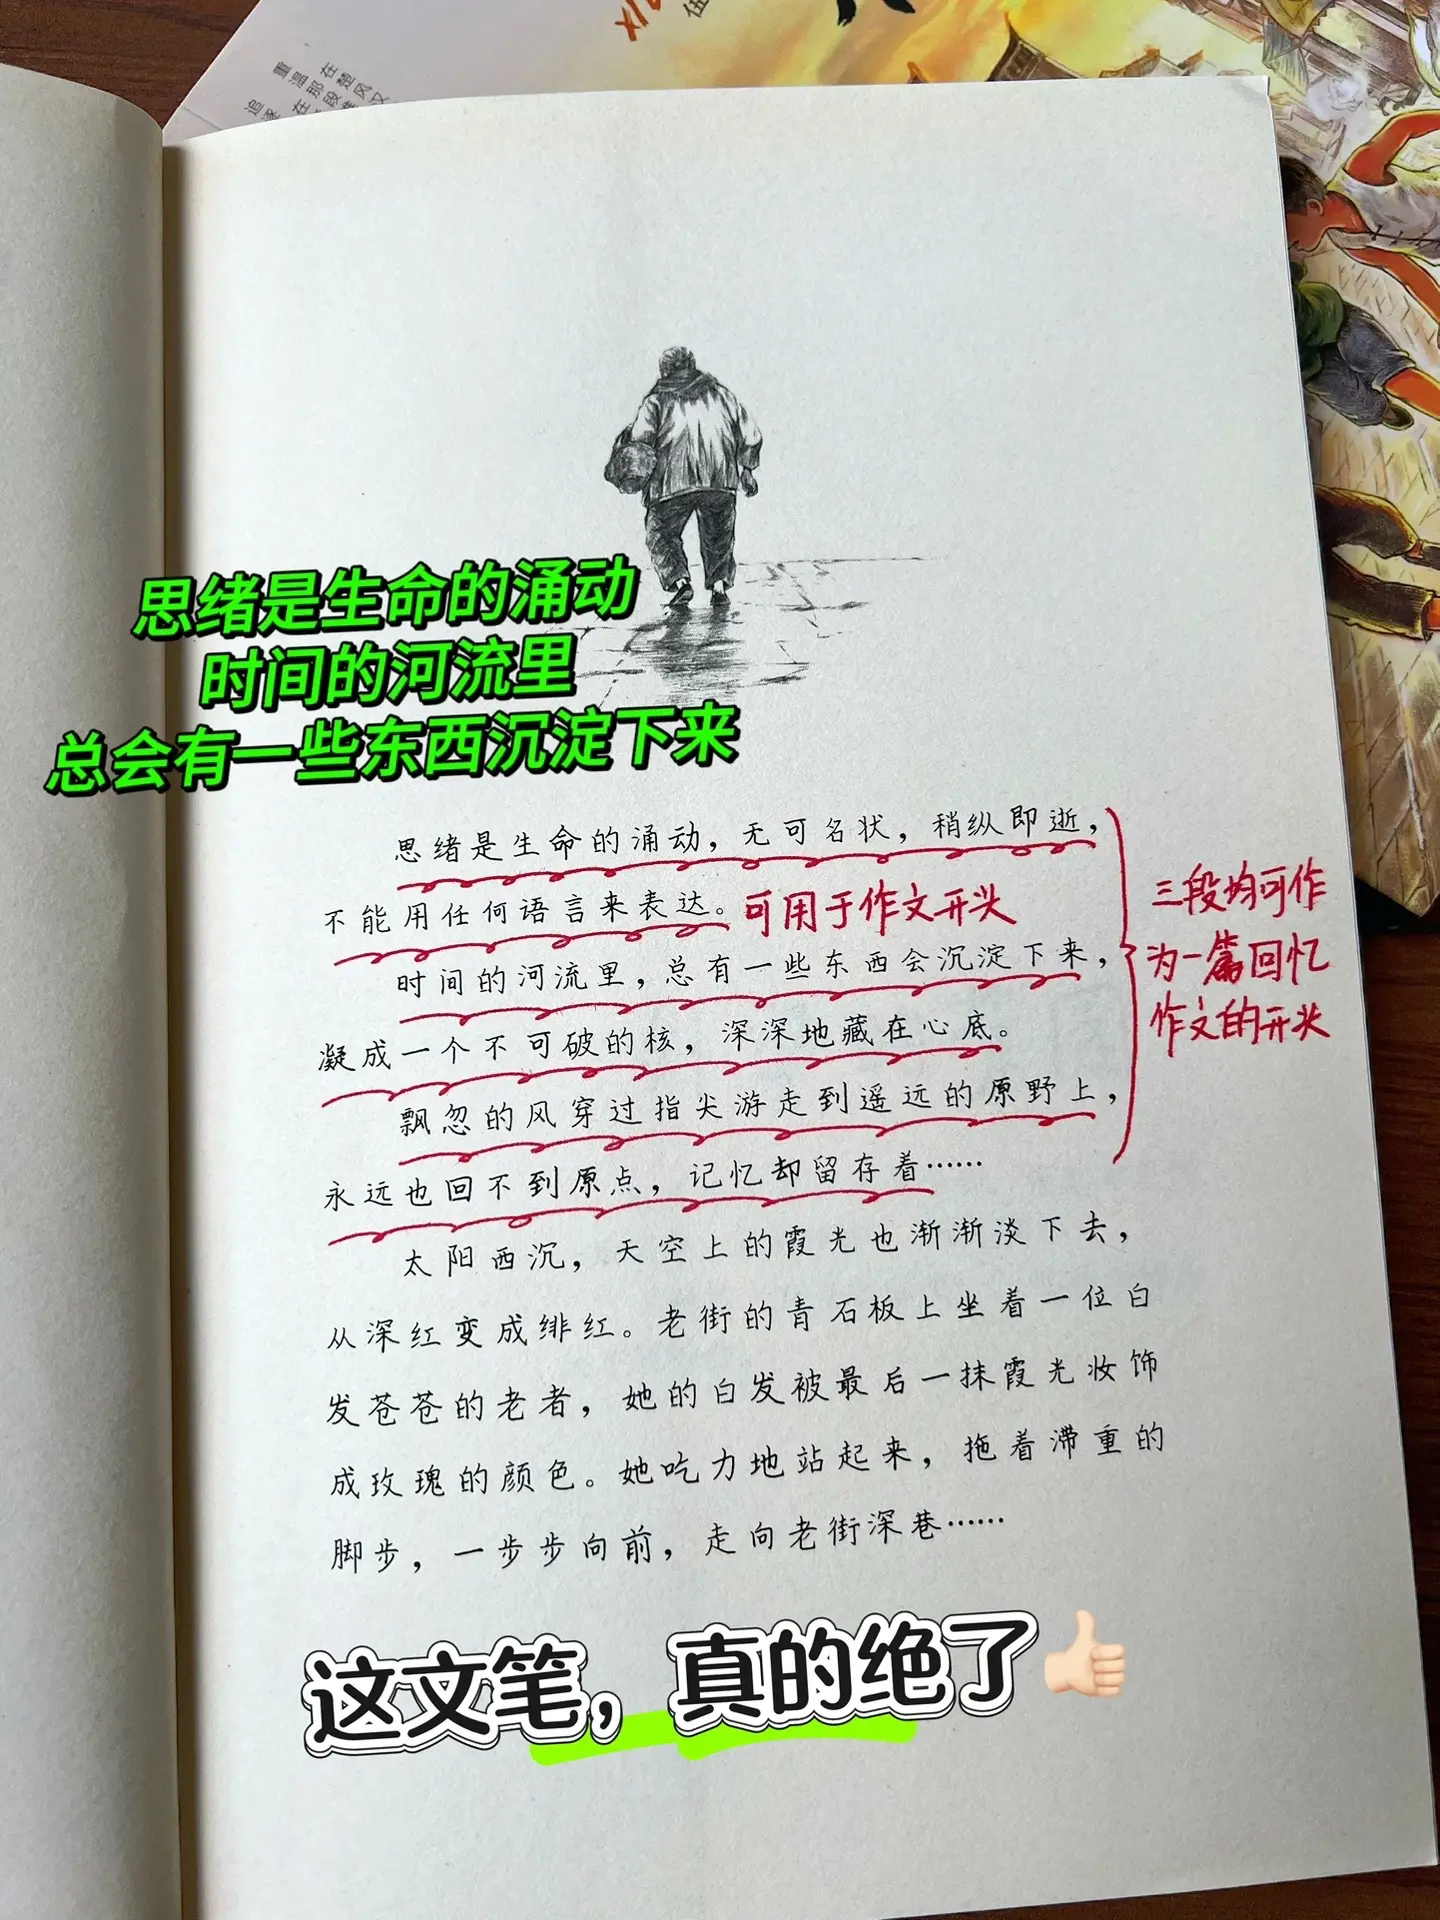 重温那段
在楚风汉
追逐
在
思绪是生命的涌动
时间的河流里
总会有一些东西沉淀下来
思绪是生命的涌动，无可名状，稍纵即逝，
不能用任何语言来表达。可用于作文开头
时间的河流里，总有一些东西会沉淀下来，
凝成一个不可破的核，深深地藏在心底。
飘忽的风穿过指尖游走到遥远的原野上，
永远也回不到原点，记忆却留存着……
三段均可作
为一篇回忆
作文的开头
太阳西沉，天空上的霞光也渐渐淡下去，
从深红变成绯红。老街的青石板上坐着一位白
发苍苍的老者，她的白发被最后一抹霞光妆饰
成玫瑰的颜色。她吃力地站起来，拖着滞重的
脚步，一步步向前，走向老街深巷……
这文笔，真的绝了👍🏻